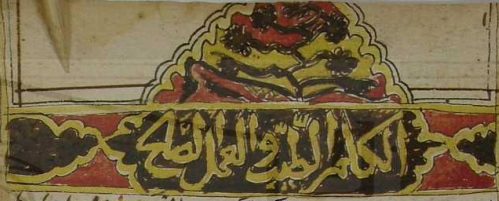 الكلم الطيب والعمل الصالح